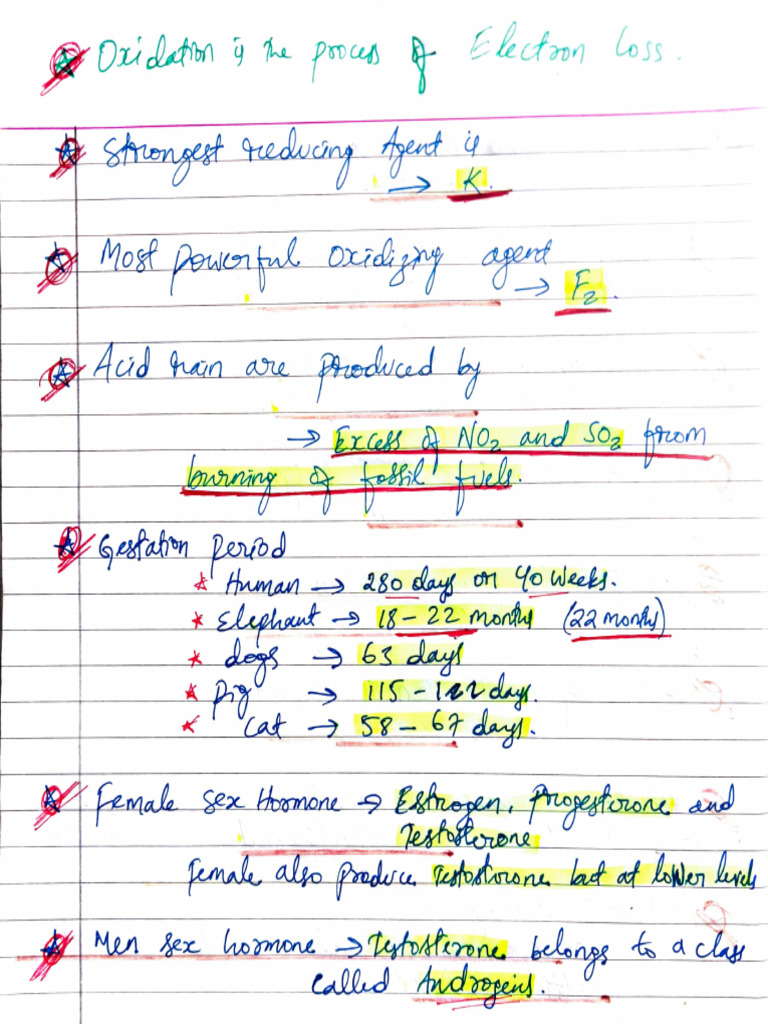 Oxidation is the process of Electron Loss.
Strongest reducing Agent is
→ K.
Most powerful oxidizing agent
→ F₂.
Acid rain are produced by
→ Excess of NO₂ and SO₂ from
burning of fossil fuels.
Gestation period
Human → 280 days or 40 weeks.
Elephant → 18 – 22 months (22 months)
dogs → 63 days
Pig → 115 – 122 days.
Cat → 58 – 67 days.
Female sex Hormone → Estrogen, Progesterone and
Testosterone
Female also produce Testosterone but at lower levels
Men sex hormone → Testosterone belongs to a class
called Androgens.